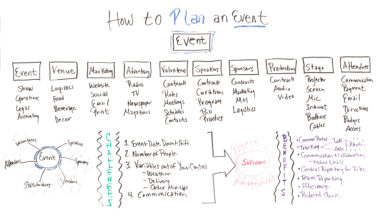 How to Plan an Event
Event
Event
Show
Operations
Legal
Accounting
Venue
Logistics
Food
Beverage
Decor
Marketing
Website
Social
Email
Print
Advertising
Radio
TV
Newspaper
Magazines
Volunteers
Contracts
Roles
Meetings
Schedules
Contacts
Speakers
Contracts
Curation
Program
Bios
Practice
Sponsors
Contracts
Marketing
Logistics
Production
Contract
Audio
Video
Stage
Projector
Screen
Mic
Internet
Batteries
Cables
Attendees
Communication
Payment
Email
Directions
Badges
Access
Event
Volunteers
Speakers
Attendees
Stakeholders
CHALLENGES
1. Event Date Doesn't Shift
2. Number of People
3. Variables out of Your Control
- Weather
- Delivery
- Other Mix-ups
4. Communication
Software
BENEFITS
Tracking
Central Repository for Files
Team Reporting
Efficiency
Reduced Stress